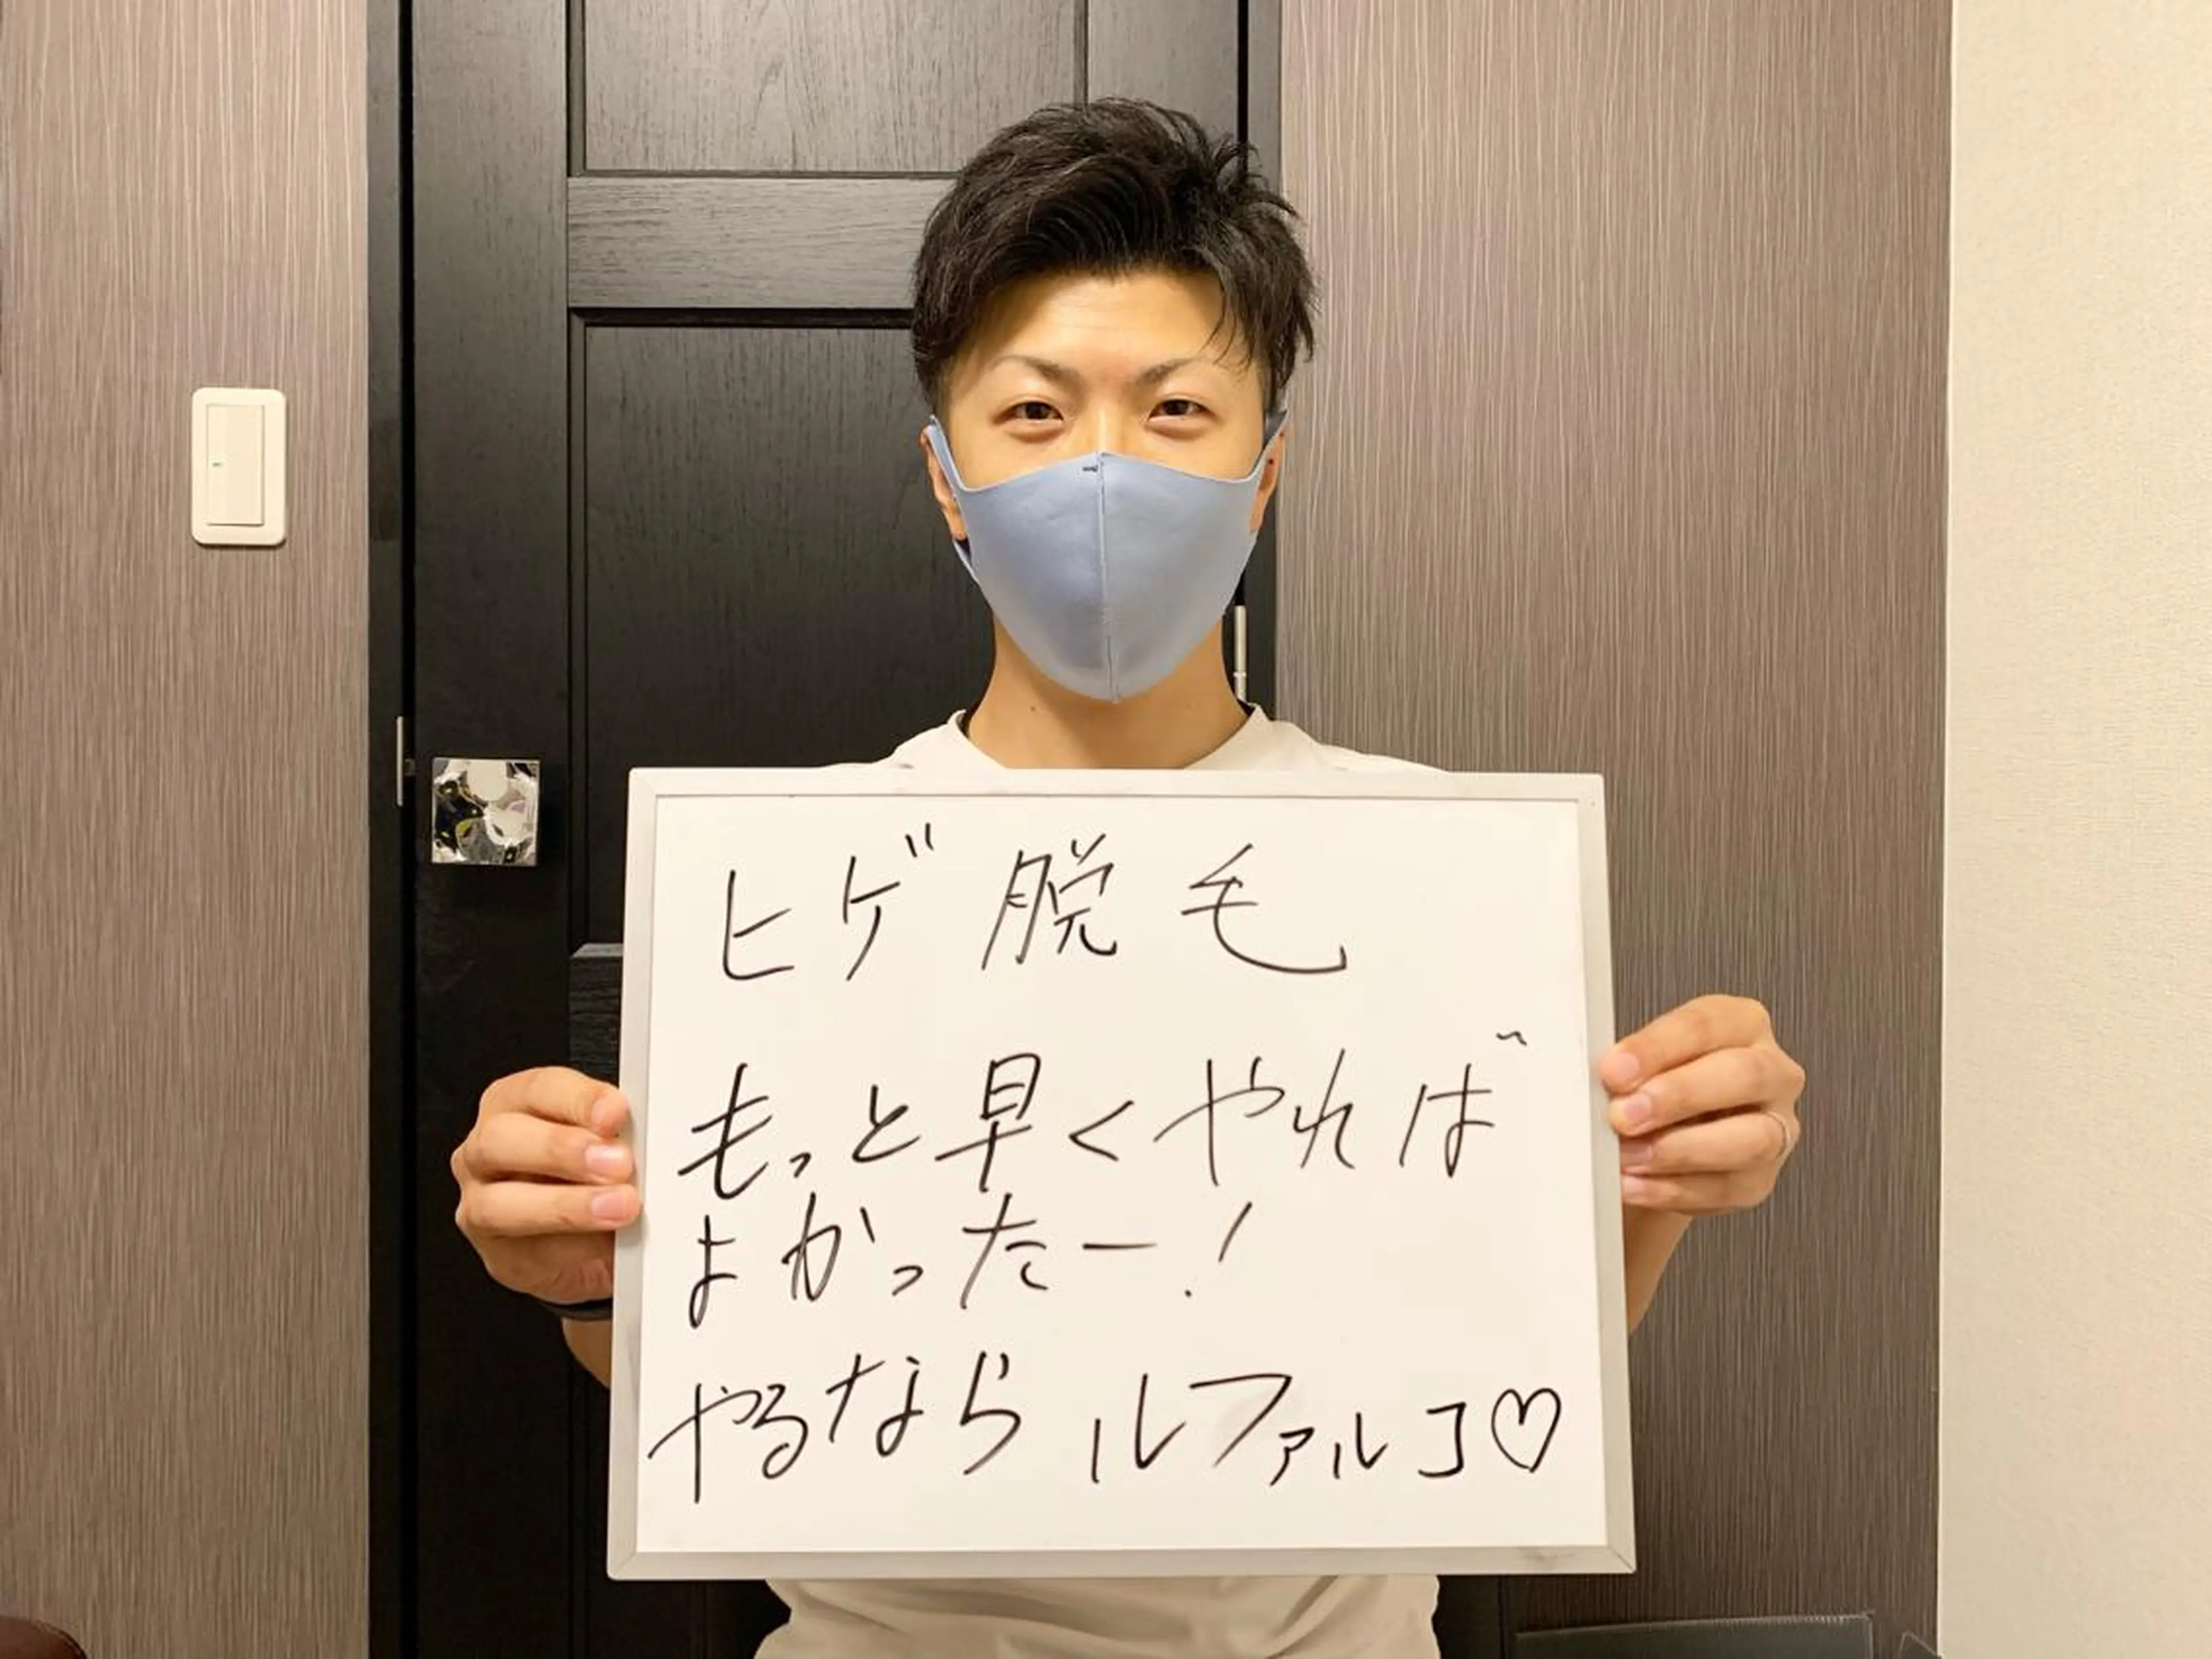 ヒゲ脱毛
もっと早くやれば
よかったー!
やるなら ルファルコ♡